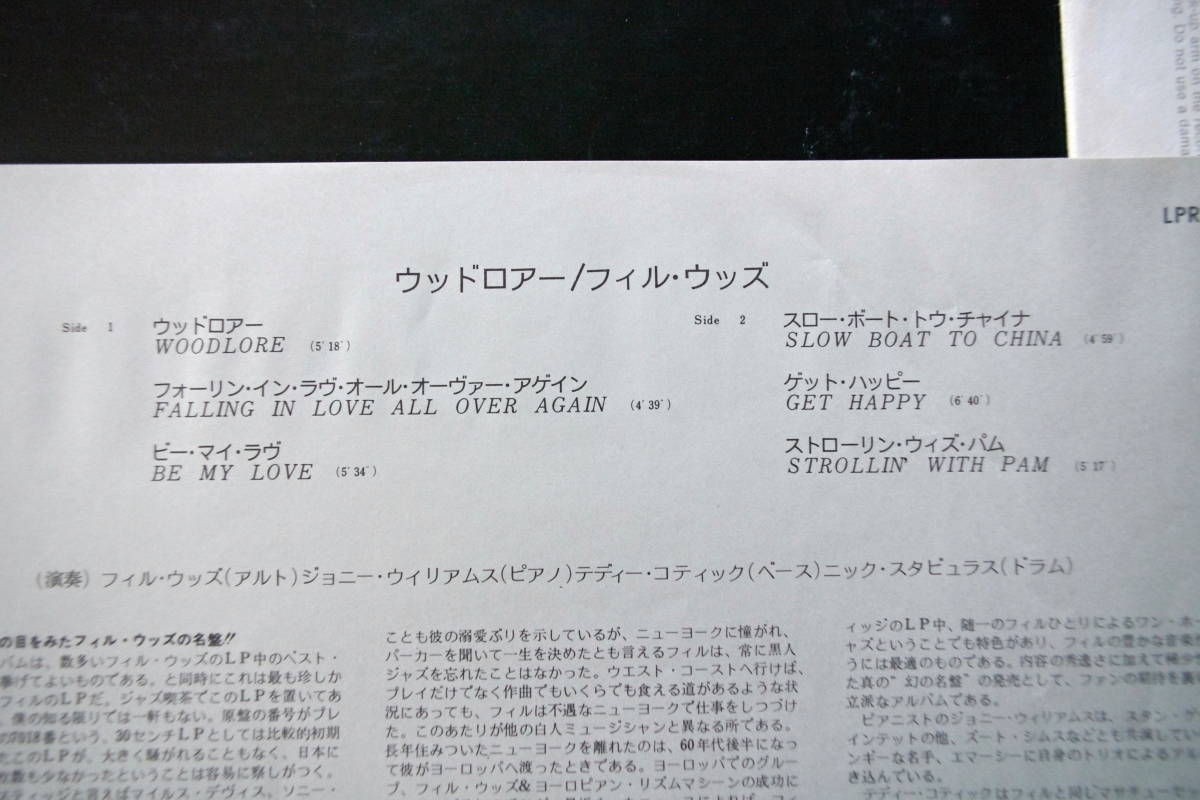 ng. Do not use a dama
LPR
ウッドロアー/フィル・ウッズ
Side 1
ウッドロアー
WOODLORE (5′18″)
フォーリン・イン・ラヴ・オール・オーヴァー・アゲイン
FALLING IN LOVE ALL OVER AGAIN (4′39″)
ビー・マイ・ラヴ
BE MY LOVE (5′34″)
Side 2
スロー・ボート・トウ・チャイナ
SLOW BOAT TO CHINA (4′59″)
ゲット・ハッピー
GET HAPPY (6′40″)
ストローリン・ウィズ・パム
STROLLIN' WITH PAM (5′17″)
(演奏) フィル・ウッズ(アルト)ジョニー・ウイリアムス(ピアノ)テディー・コティック(ベース)ニック・スタビュラス(ドラム)
の目をみたフィル・ウッズの名盤!!
バムは、数多いフィル・ウッズのLP中のベスト・
挙げてよいものである。と同時にこれは最も珍しか
フィルのLPだ。ジャズ喫茶でこのLPを置いてあ
、僕の知る限りでは一軒もない。原盤の番号がプレ
の7018番という、30センチLPとしては比較的初期
たこのLPが、大きく騒がれることもなく、日本に
枚数も少なかったということは容易に察しがつく。
スティッジと言えばマイルス・デヴィス、ソニー・
ことも彼の溺愛ぶりを示しているが、ニューヨークに憧がれ、
パーカーを聞いて一生を決めたとも言えるフィルは、常に黒人
ジャズを忘れたことはなかった。ウエスト・コーストへ行けば、
プレイだけでなく作曲でもいくらでも食える道があるような状
況にあっても、フィルは不遇なニューヨークで仕事をしつづけ
た。このあたりが他の白人ミュージシャンと異なる所である。
長年住みついたニューヨークを離れたのは、60年代後半になっ
て彼がヨーロッパへ渡ったときである。ヨーロッパでのグルー
プ、フィル・ウッズ&ヨーロピアン・リズムマシーンの成功に
ィッジのLP中、随一のフィルひとりによるワン・ホ
ャズということでも特色があり、フィルの豊かな音楽
うには最適のものである。内容の秀逸さに加えて極少
た真の"幻の名盤"の発売として、ファンの期待を裏
立派なアルバムである。
ピアニストのジョニー・ウィリアムスは、スタン・ゲ
インテットの他、ズート・シムスなどとも共演してい
ンギーな名手、エマーシーに自身のトリオによるアル
き込んでいる。
テディー・コティックはフィルと同じマサチューセ